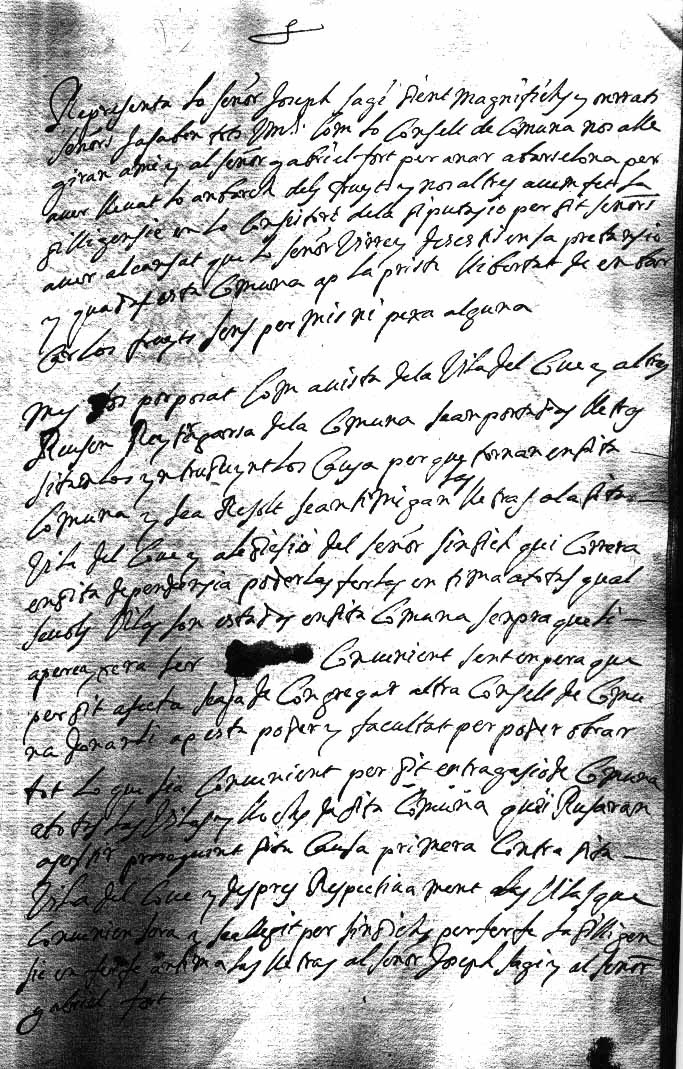 Representa lo señor Joseph Sagi dient Magnifichs y onrrats
señors ja saben ses Vms. Com lo Consell de Comuna nos alle
giran a mi y al señor gabriel fort per anar a barselona per
auer lleuat lo anbarch dels fruyts y nosaltres auem fet la
dilligensie en lo Consistori de la diputasio per dit señors
auer alcansat que lo señor Virrey desestis en sa pretensio
y queda esta Comuna ap la prist llibertat de enbar
car los fruyts sens permis ni pena alguna
mes proposat Com a vista de la Vila del Coue y altres
de la Comuna sean portadas lletras
sitanlos y Causa per que tornan en dita
Comuna y sea Resolt sean lletras a la dita
Vila del Coue y a despesio del señor sindich qui Correra
en dita dependensia poderlas ferlas a totas qual
seuols Vilas son estadas en dita Comuna senpra que li
apereyxera ser Conuenient sent enpero que
per dit afecta se aja de Congregar altra Consell de Comu
na donanli a questa poder y facultat per poder obrar
tot lo que sia Conuenient per dit entragasio de Comuna
a totas las Vilas y llochs de dita Comuna qui Rusaran
prosaguint dita Causa primera Contra dita
Vila del Coue y despres Respectiua ment a las Vilas que
Conuenien sera y sea llegit per sindichs per fer fe la dilligen
sie en las lletras al señor Joseph Sagi y al señor
gabriel fort